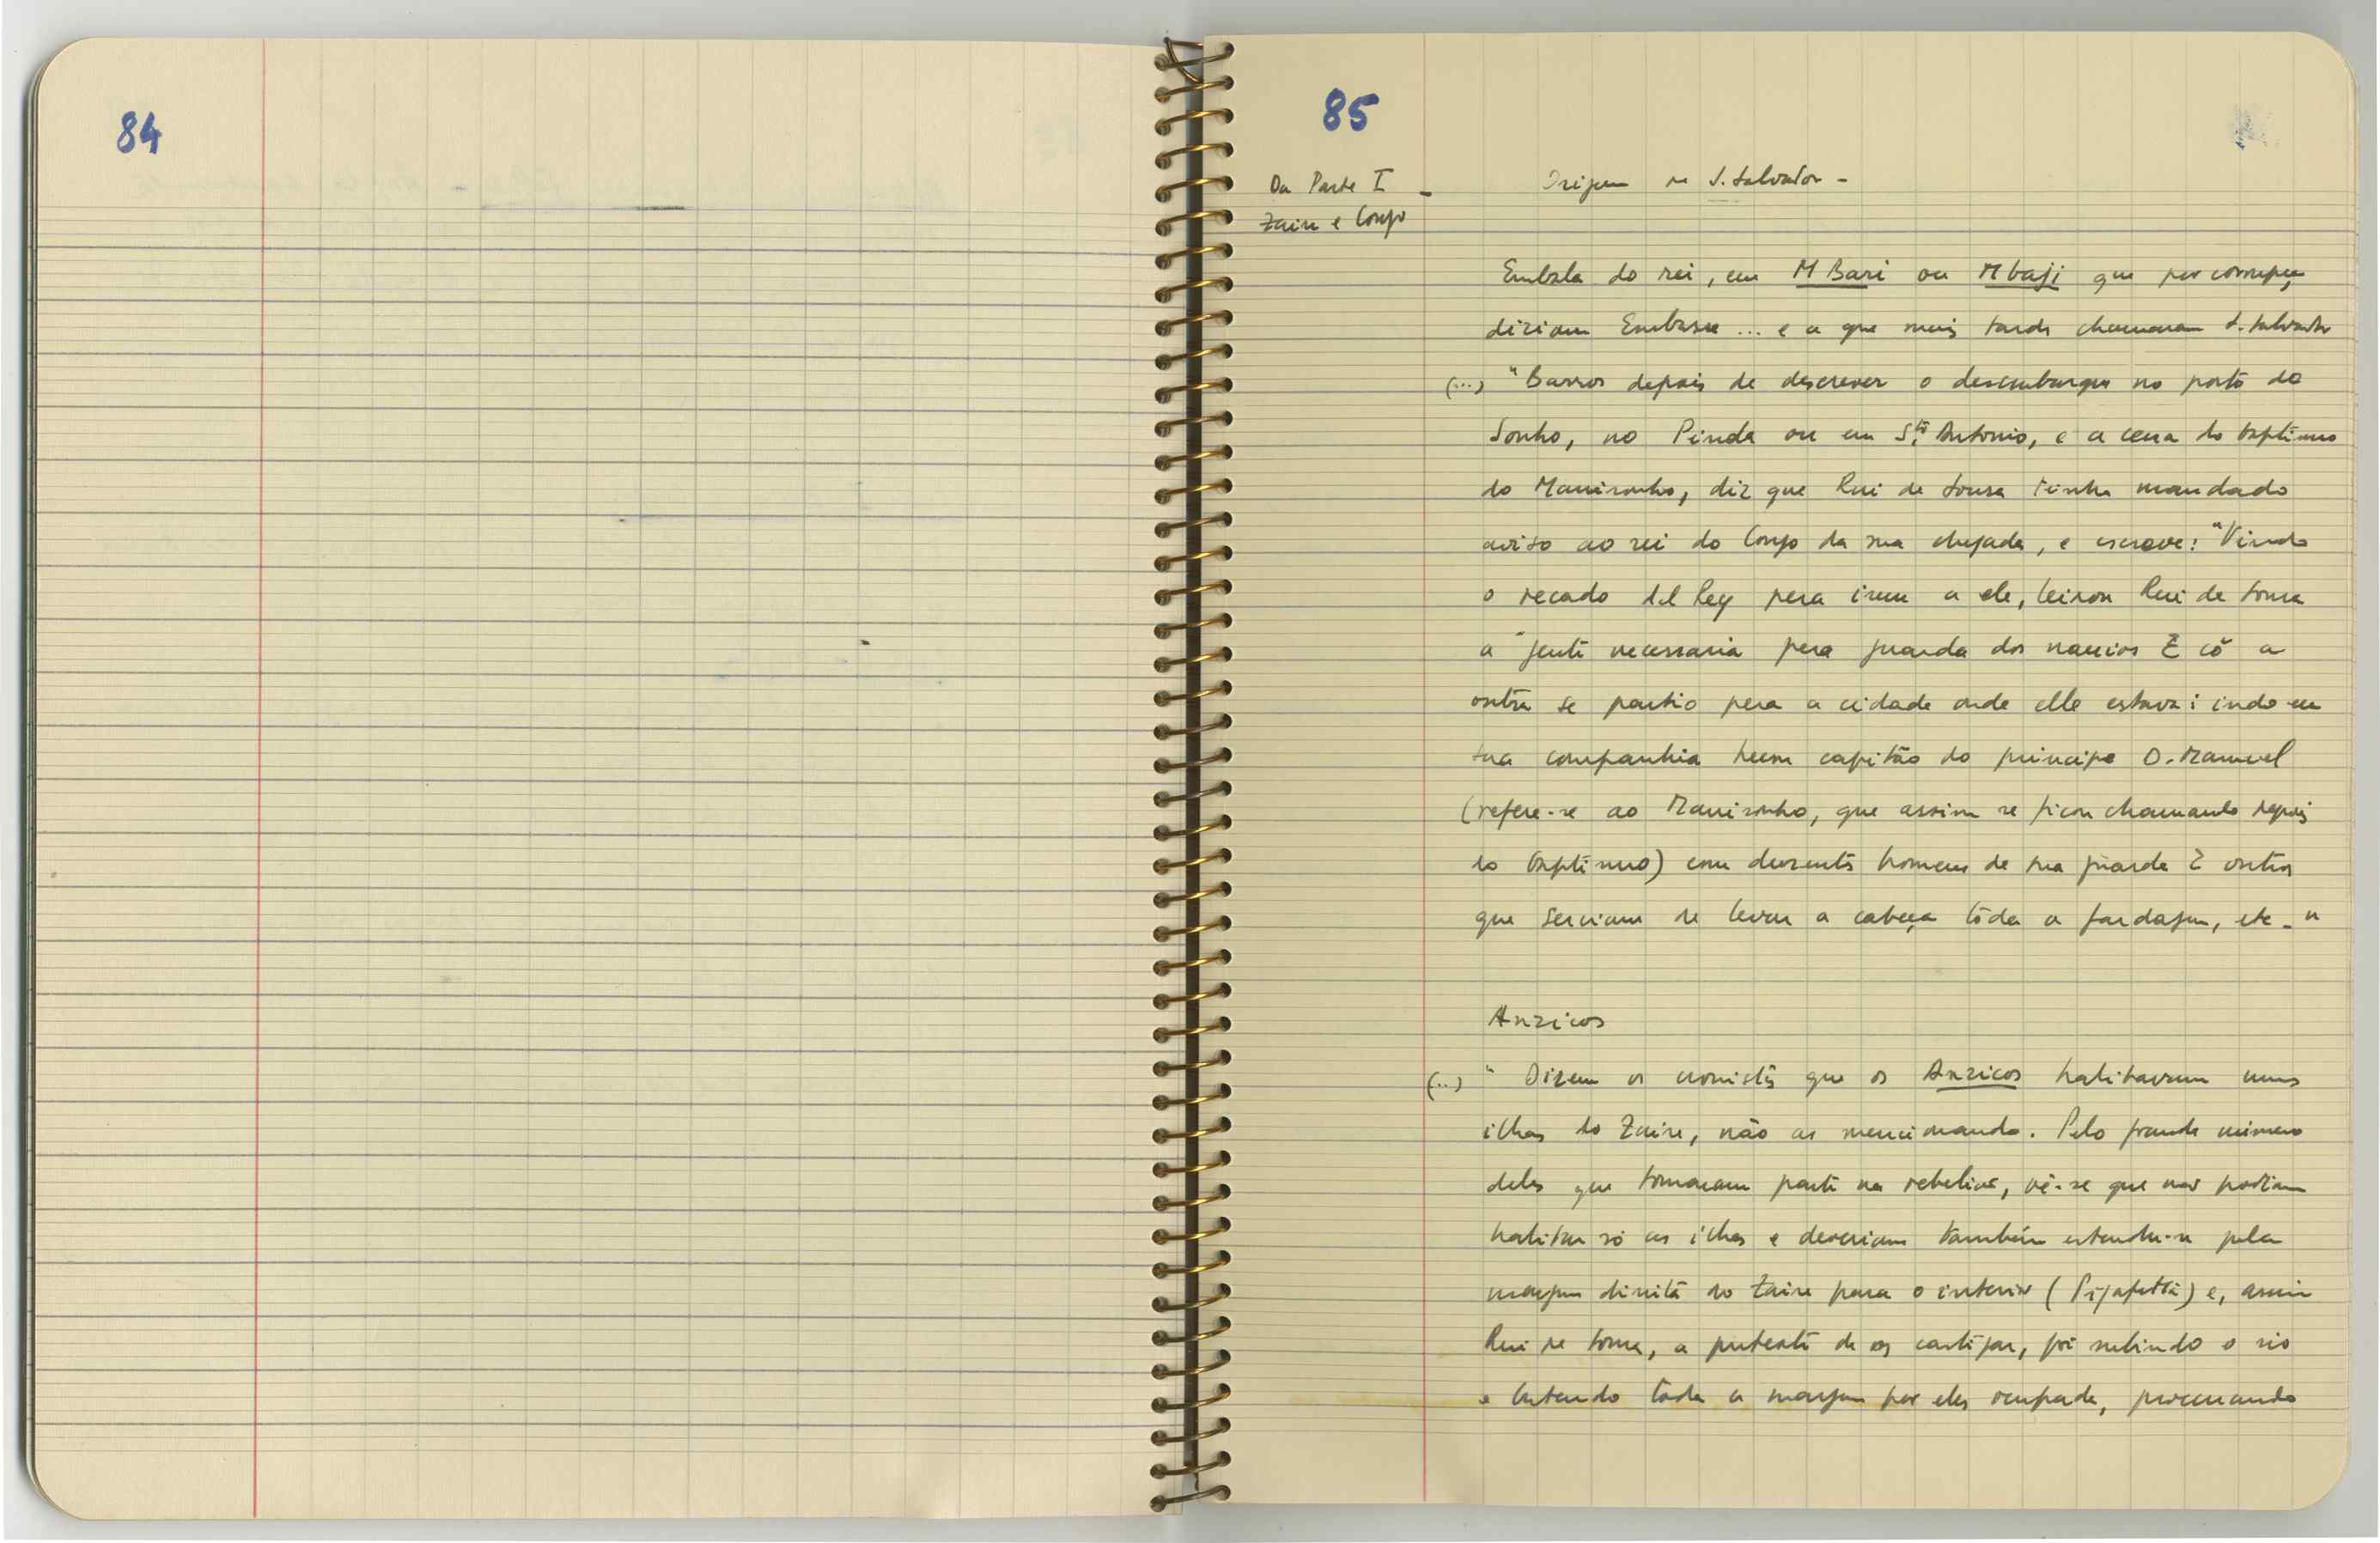 84
85
Da Parte I -
Zaire e Congo
Origem de S. Salvador -
Embala do rei, em M Bari ou Mbaji que por corrupç
diziam Embasse ... e a que mais tarde chamaram S. Salvador
(...) "Barros depois de descrever o desembarque no porto do
Sonho, no Pinda ou em Stº Antonio, e a cena do baptismo
do Manisonho, diz que Rui de Sousa tinha mandado
aviso ao rei do Congo da sua chegada, e escreve: "Vindo
o recado del Rey pera irem a ele, leixou Rui de Sousa
a gente necessaria pera guarda dos nauios & cõ a
outra se partio pera a cidade onde elle estava: indo em
sua companhia hum capitão do principe D. Manuel
(refere-se ao Manisonho, que assim se ficou chamando depois
do baptismo) com duzentos homens de sua guarda & outros
que seruiam de levar a cabeça tôda a fardagem, etc - "
Anzicos
(...) " Dizem os cronistas que os Anzicos habitavam umas
ilhas do Zaire, não as mencionando. Pelo grande número
deles que tomaram parte na rebelião, vê-se que não podiam
habitar só as ilhas e deveriam também estender-se pela
margem direita do Zaire para o interior (Pigafetta) e, assim
Rui de Sousa, a pretexto de os castigar, foi subindo o rio
e batendo toda a margem por eles ocupada, procurando